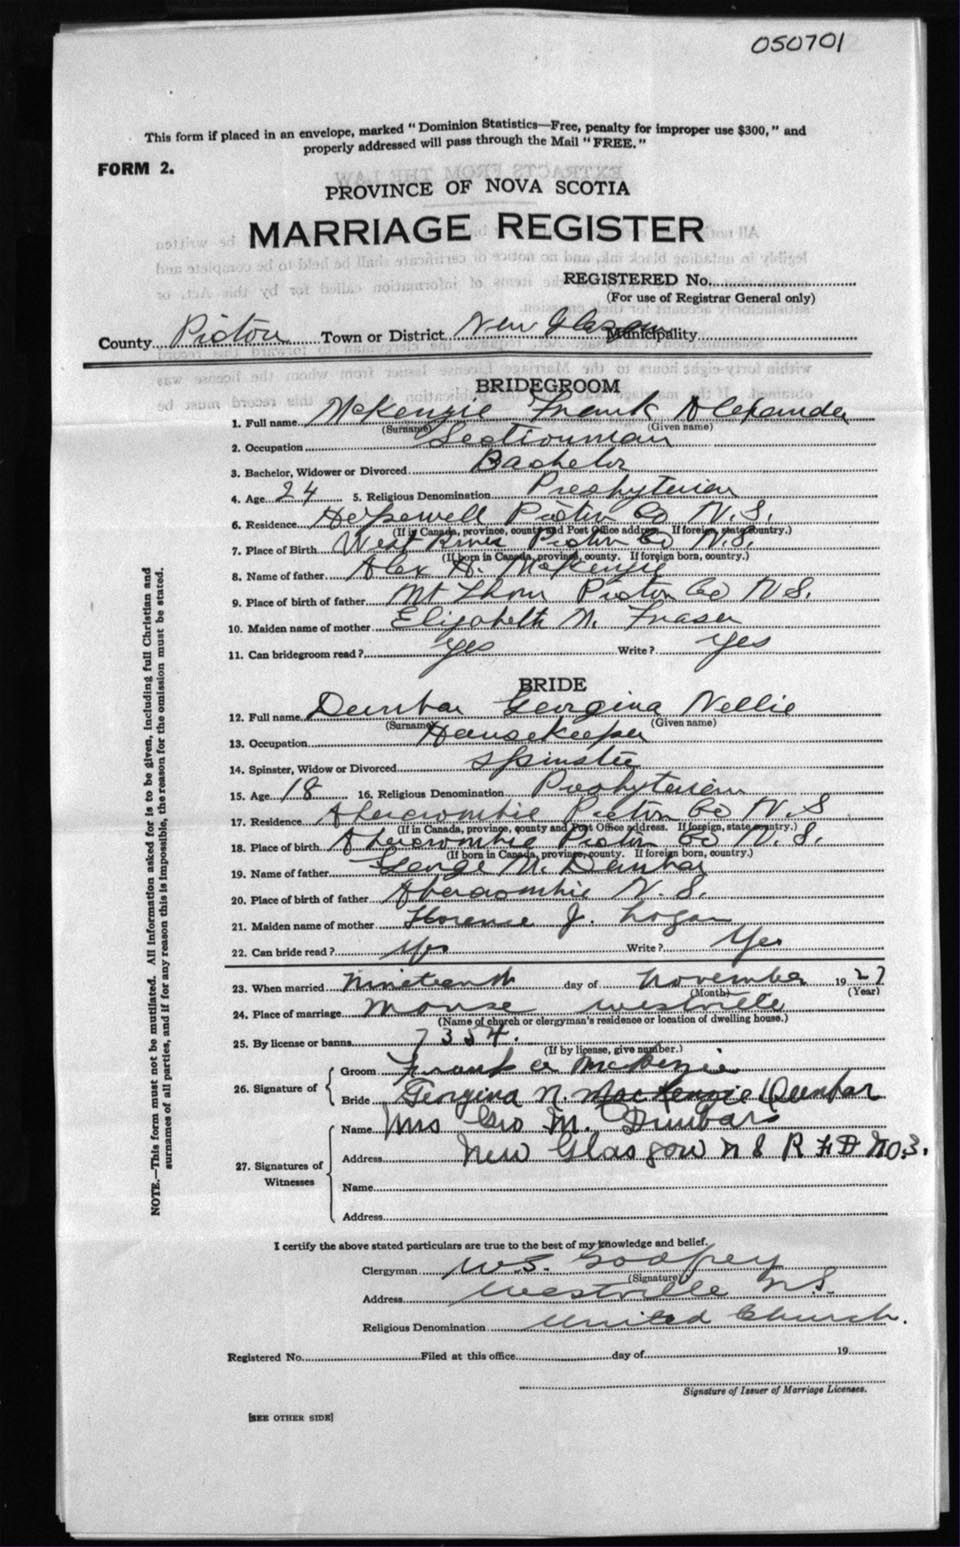 050701
This form if placed in an envelope, marked "Dominion Statistics—Free, penalty for improper use $300," and
properly addressed will pass through the Mail "FREE."
FORM 2.
PROVINCE OF NOVA SCOTIA
MARRIAGE REGISTER
REGISTERED No.
(For use of Registrar General only)
County Pictou Town or District New Glasgow Municipality
BRIDEGROOM
1. Full name McKenzie Frank Alexander
(Surname) (Given name)
2. Occupation Sectionman
3. Bachelor, Widower or Divorced Bachelor
4. Age 24 5. Religious Denomination Presbyterian
6. Residence Hopewell Pictou Co N.S.
(If in Canada, province, county and Post Office address. If foreign, state country.)
7. Place of Birth West River Pictou Co N.S.
(If born in Canada, province, county. If foreign born, country.)
8. Name of father Alex H. McKenzie
9. Place of birth of father Mt Thom Pictou Co N S.
10. Maiden name of mother Elizabeth N. Fraser
11. Can bridegroom read? yes Write? yes
BRIDE
12. Full name Dunbar Georgina Nellie
(Surname) (Given name)
13. Occupation Housekeeper
14. Spinster, Widow or Divorced Spinster
15. Age 18 16. Religious Denomination Presbyterian
17. Residence Abercrombie Pictou Co N. S
(If in Canada, province, county and Post Office address. If foreign, state country.)
18. Place of birth Abercrombie Pictou Co N. S.
(If born in Canada, province, county. If foreign born, country.)
19. Name of father George M. Dunbar
20. Place of birth of father Abercrombie N. S.
21. Maiden name of mother Florence J. Logan
22. Can bride read? Yes Write? Yes
23. When married nineteenth day of November 1927
(Month) (Year)
24. Place of marriage Manse Westville
(Name of church or clergyman's residence or location of dwelling house.)
25. By license or banns 7354.
(If by license, give number.)
26. Signature of { Groom Frank A McKenzie
Bride Georgina N. MacKenzie (Dunbar
27. Signatures of Witnesses { Name Mrs Geo M. Dunbar
Address New Glasgow N S R F D No. 3.
Name
Address
I certify the above stated particulars are true to the best of my knowledge and belief.
Clergyman W.S. Godfrey
(Signature)
Address Westville N.S.
Religious Denomination United Church.
Registered No. Filed at this office day of 19
Signature of Issuer of Marriage Licenses.
[SEE OTHER SIDE]
NOTE.—This form must not be mutilated. All information asked for is to be given, including full Christian and
surnames of all parties, and if for any reason this is impossible, the reason for the omission must be stated.